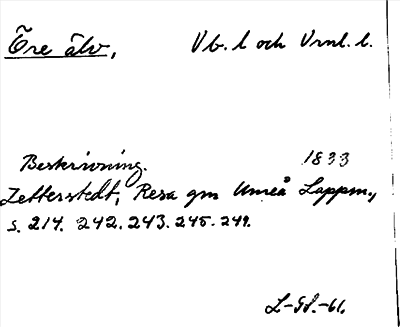 Öre älv, Vb. l och Vrml. l.
Beskrivning. 1833
Zetterstedt, Resa gm Umeå Lappm.,
s. 214. 242. 243. 245. 249.